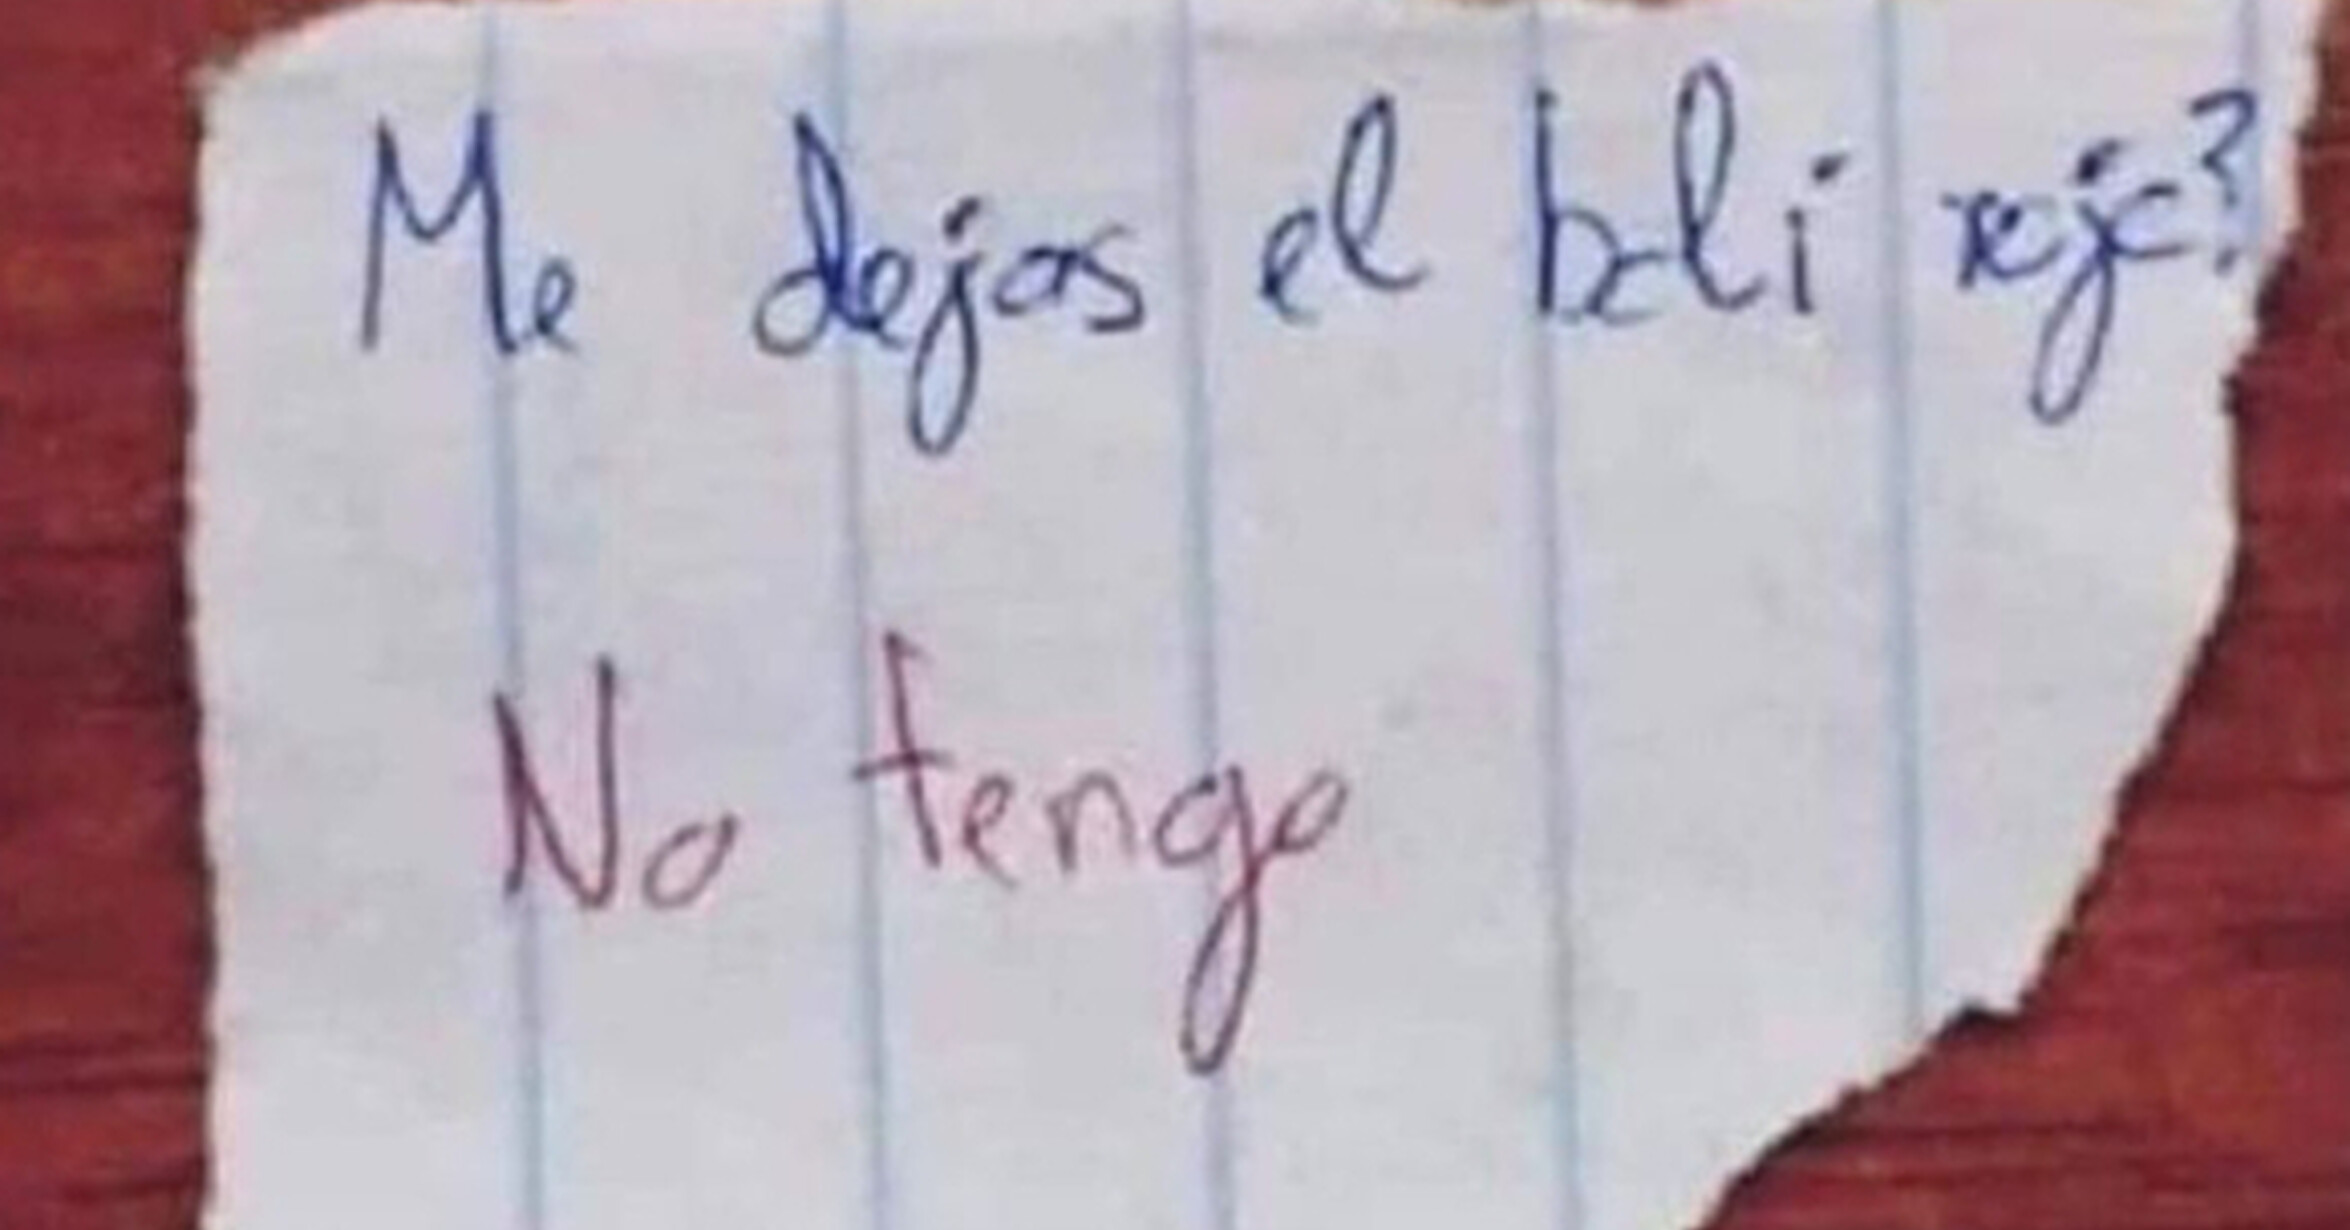 Me dejas el boli rojo?
No tengo